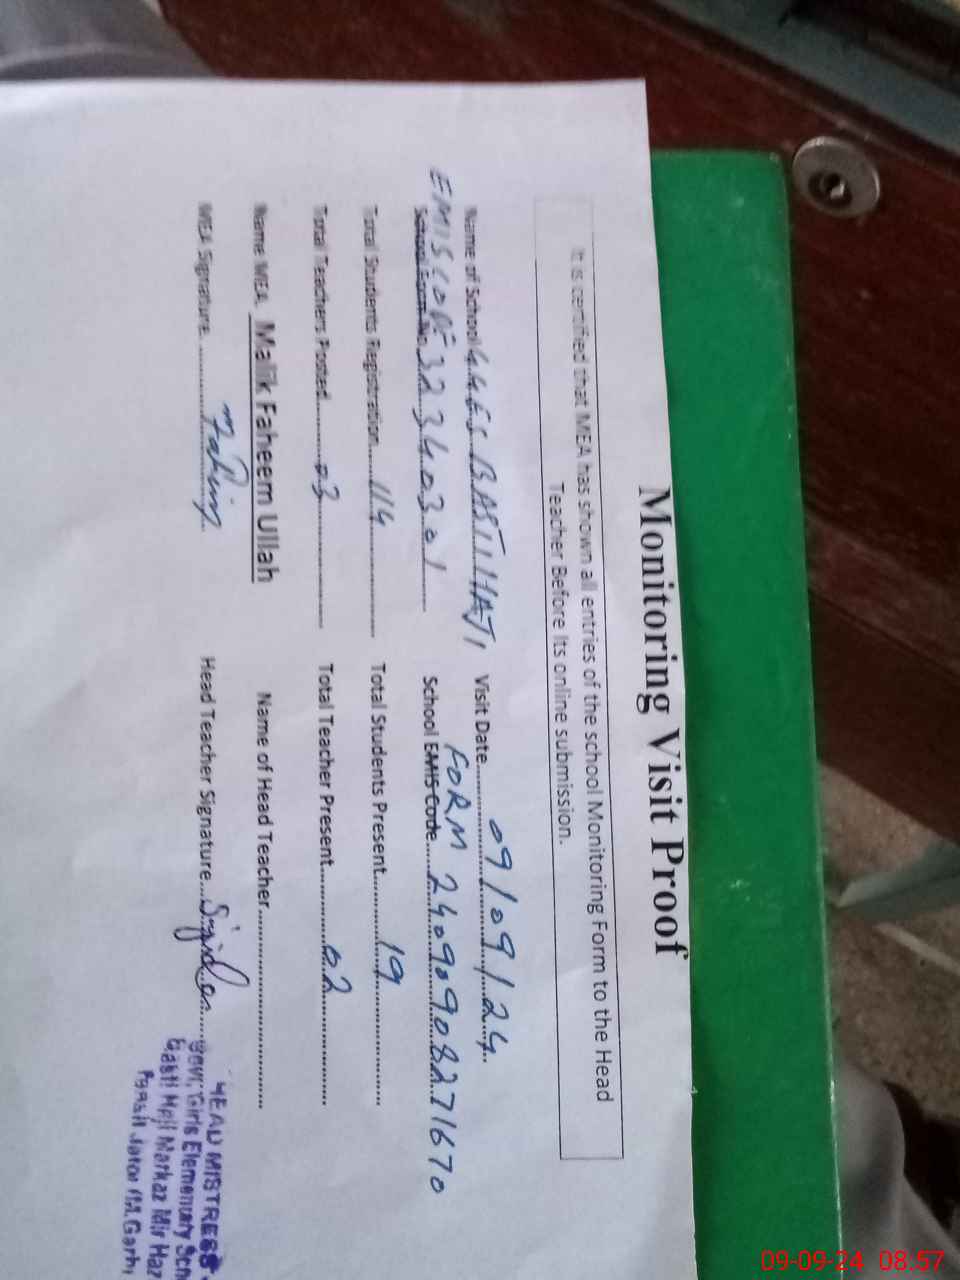 Monitoring Visit Proof
It is certified that MEA has shown all entries of the school Monitoring Form to the Head
Teacher Before Its online submission.
Name of School GGES BASTI HAJI Visit Date 09/09/24
EMIS CODE 32340301 FORM
School School EMIS Code 24090908271670
Total Students Registration 114 Total Students Present 19
Total Teachers Posted 03 Total Teacher Present 02
Name MEA Malik Faheem Ullah Name of Head Teacher
MEA Signature Fahim Head Teacher Signature
HEAD MISTRESS
Govt; Girls Elementary Sch
Basti Haji Markaz Mir Haz
Jatoi (M.Garh
09-09-24 08:57